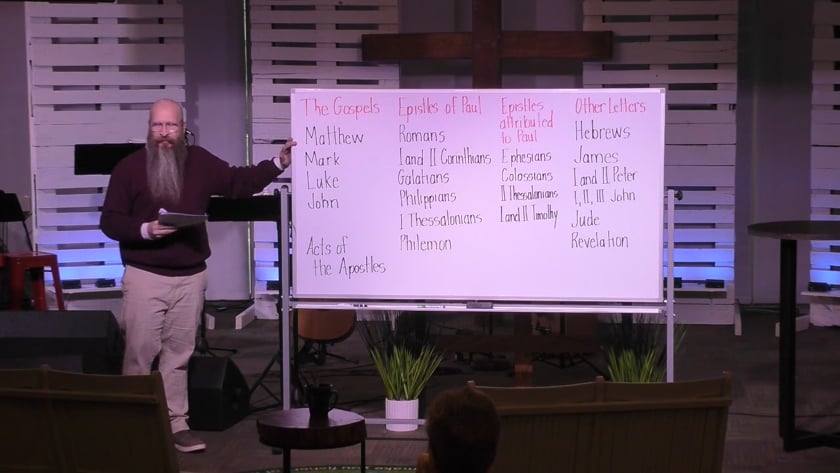 The Gospels
Matthew
Mark
Luke
John
Acts of
the Apostles
Epistles of Paul
Romans
I and II Corinthians
Galatians
Philippians
I Thessalonians
Philemon
Epistles
attributed
to Paul
Ephesians
Colossians
II Thessalonians
I and II Timothy
Other Letters
Hebrews
James
I and II Peter
I, II, III John
Jude
Revelation